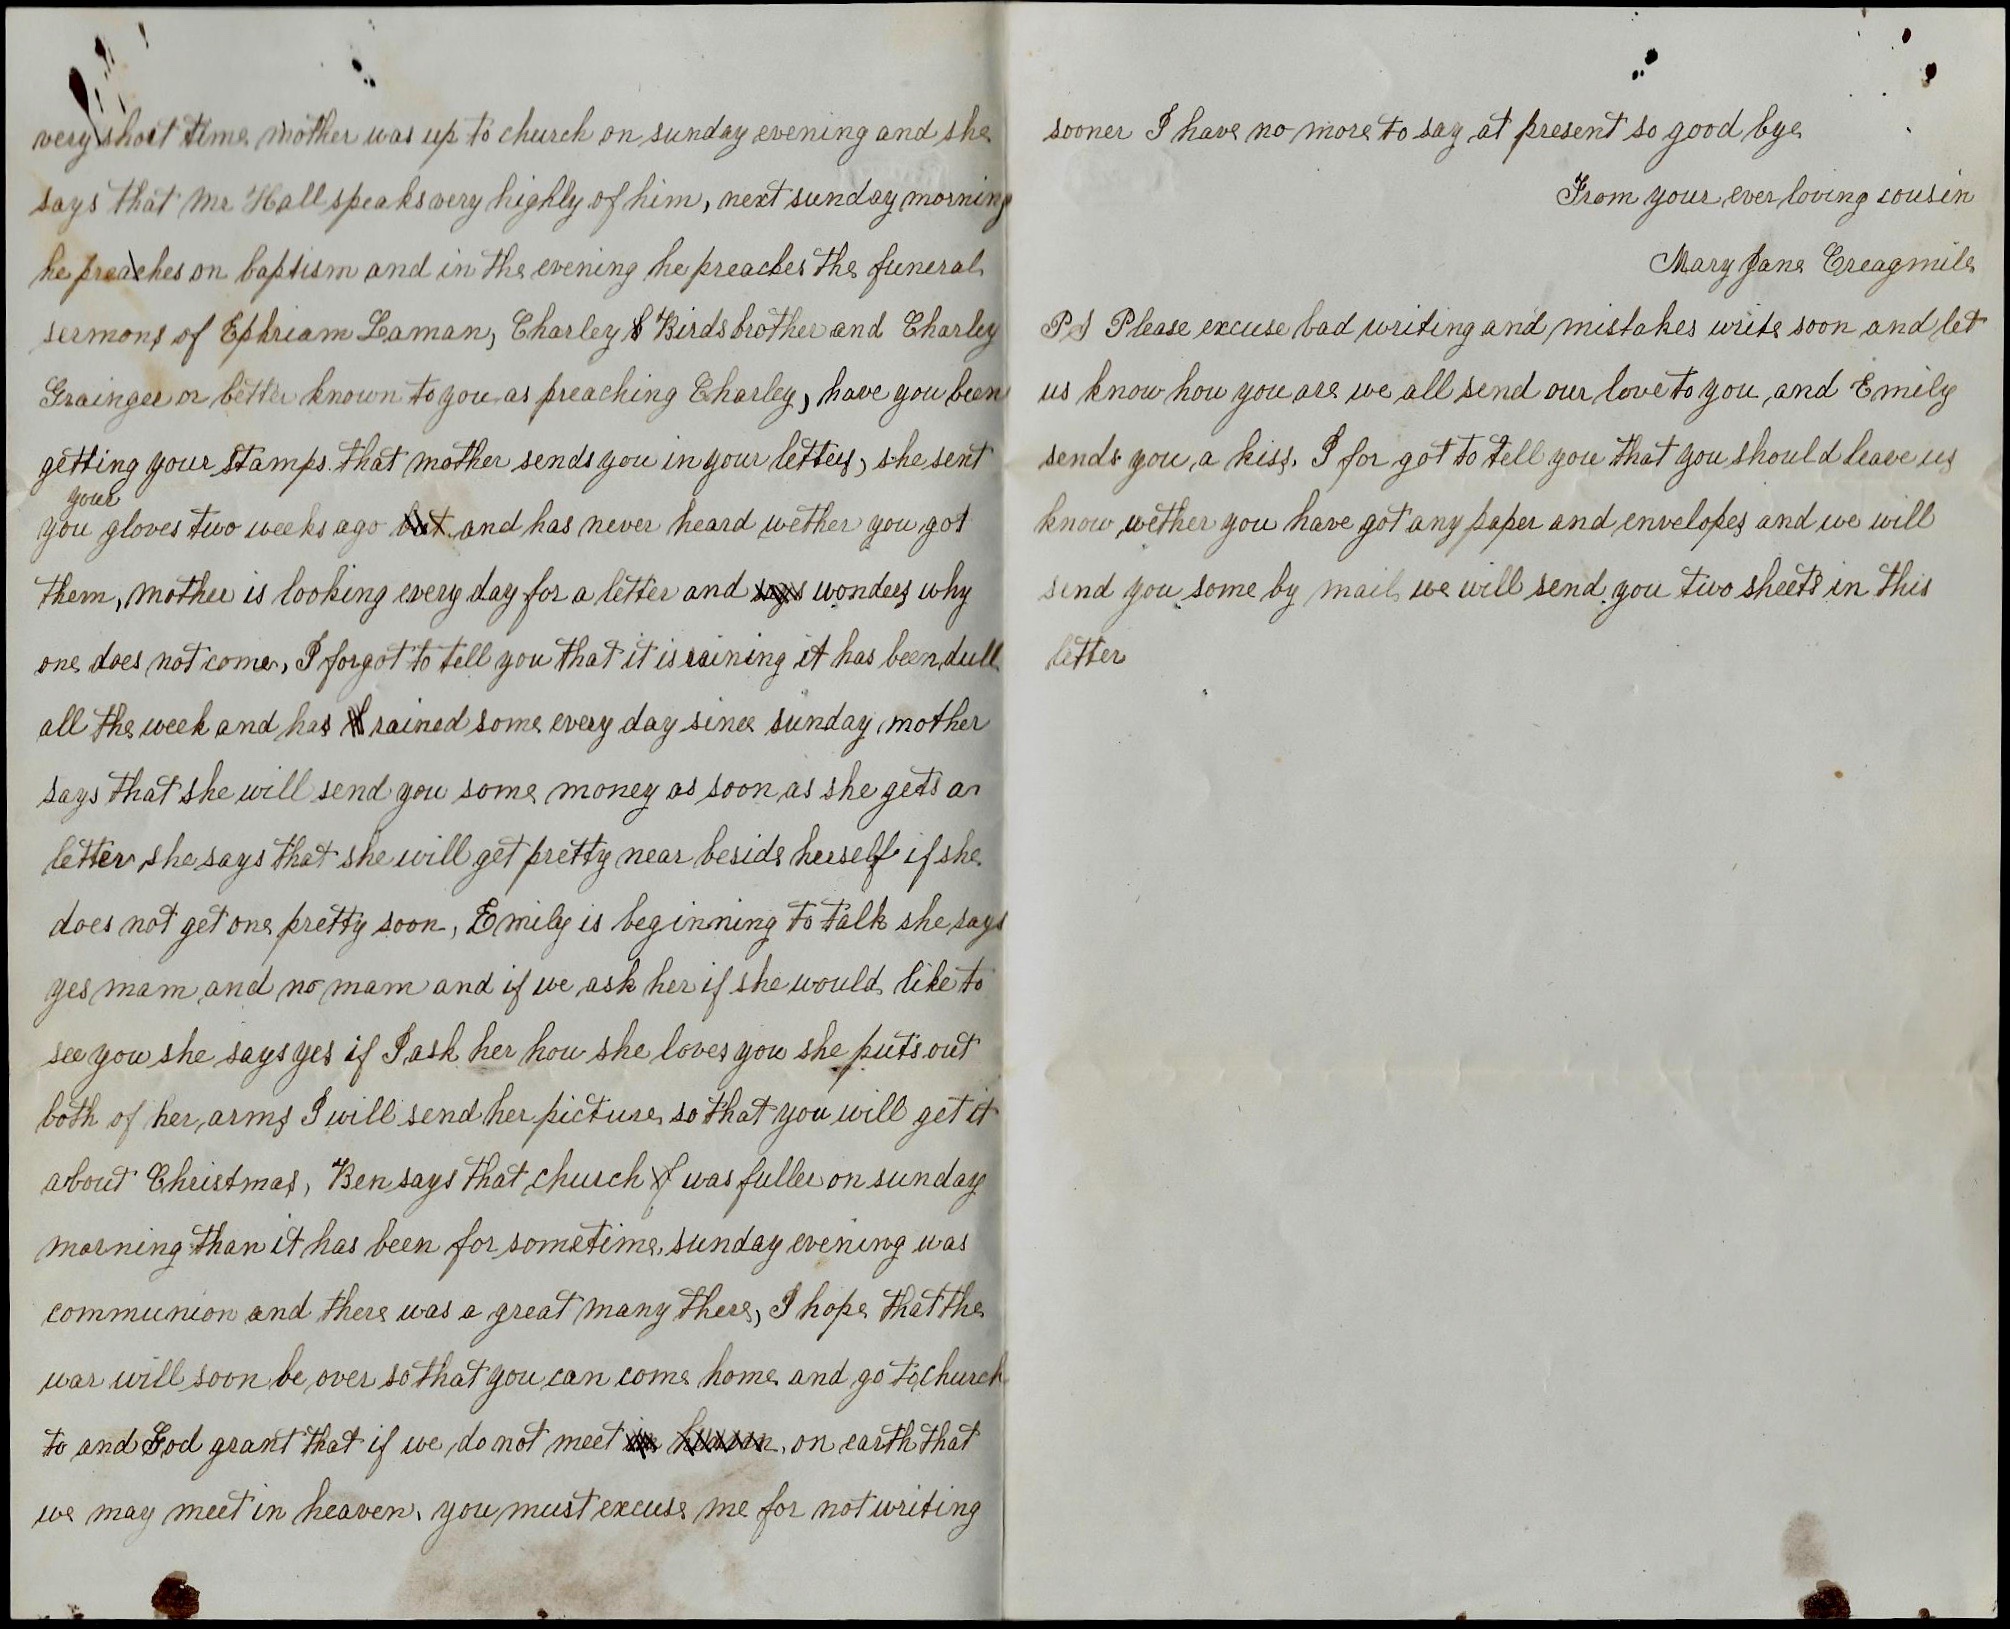 very short time mother was up to church on sunday evening and she
says that Mr Hall speaks very highly of him, next sunday morning
he preaches on baptism and in the evening he preaches the funeral
sermons of Ephriam Laman, Charley Birds brother and Charley
Grainger or better known to you as preaching Charley, have you been
getting your stamps that mother sends you in your letters, she sent
your
you gloves two weeks ago but and has never heard wether you got
them, mother is looking every day for a letter and says wonders why
one does not come, I forgot to tell you that it is raining it has been dull
all the week and has rained some every day since sunday mother
says that she will send you some money as soon as she gets a
letter she says that she will get pretty near beside herself if she
does not get one pretty soon, Emily is beginning to talk she says
yes mam and no mam and if we ask her if she would like to
see you she says yes if I ask her how she loves you she puts out
both of her arms I will send her picture so that you will get it
about Christmas, Ben says that church was fuller on sunday
morning than it has been for sometime, sunday evening was
communion and there was a great many there, I hope that the
war will soon be over so that you can come home and go to church
to and God grant that if we do not meet in heaven on earth that
we may meet in heaven, you must excuse me for not writing
sooner I have no more to say at present so good bye
From your ever loving cousin
Mary Jane Creagmile
PS Please excuse bad writing and mistakes write soon and let
us know how you are we all send our love to you and Emily
sends you a kiss. I for got to tell you that you should leave us
know wether you have got any paper and envelopes and we will
send you some by mail we will send you two sheets in this
letter